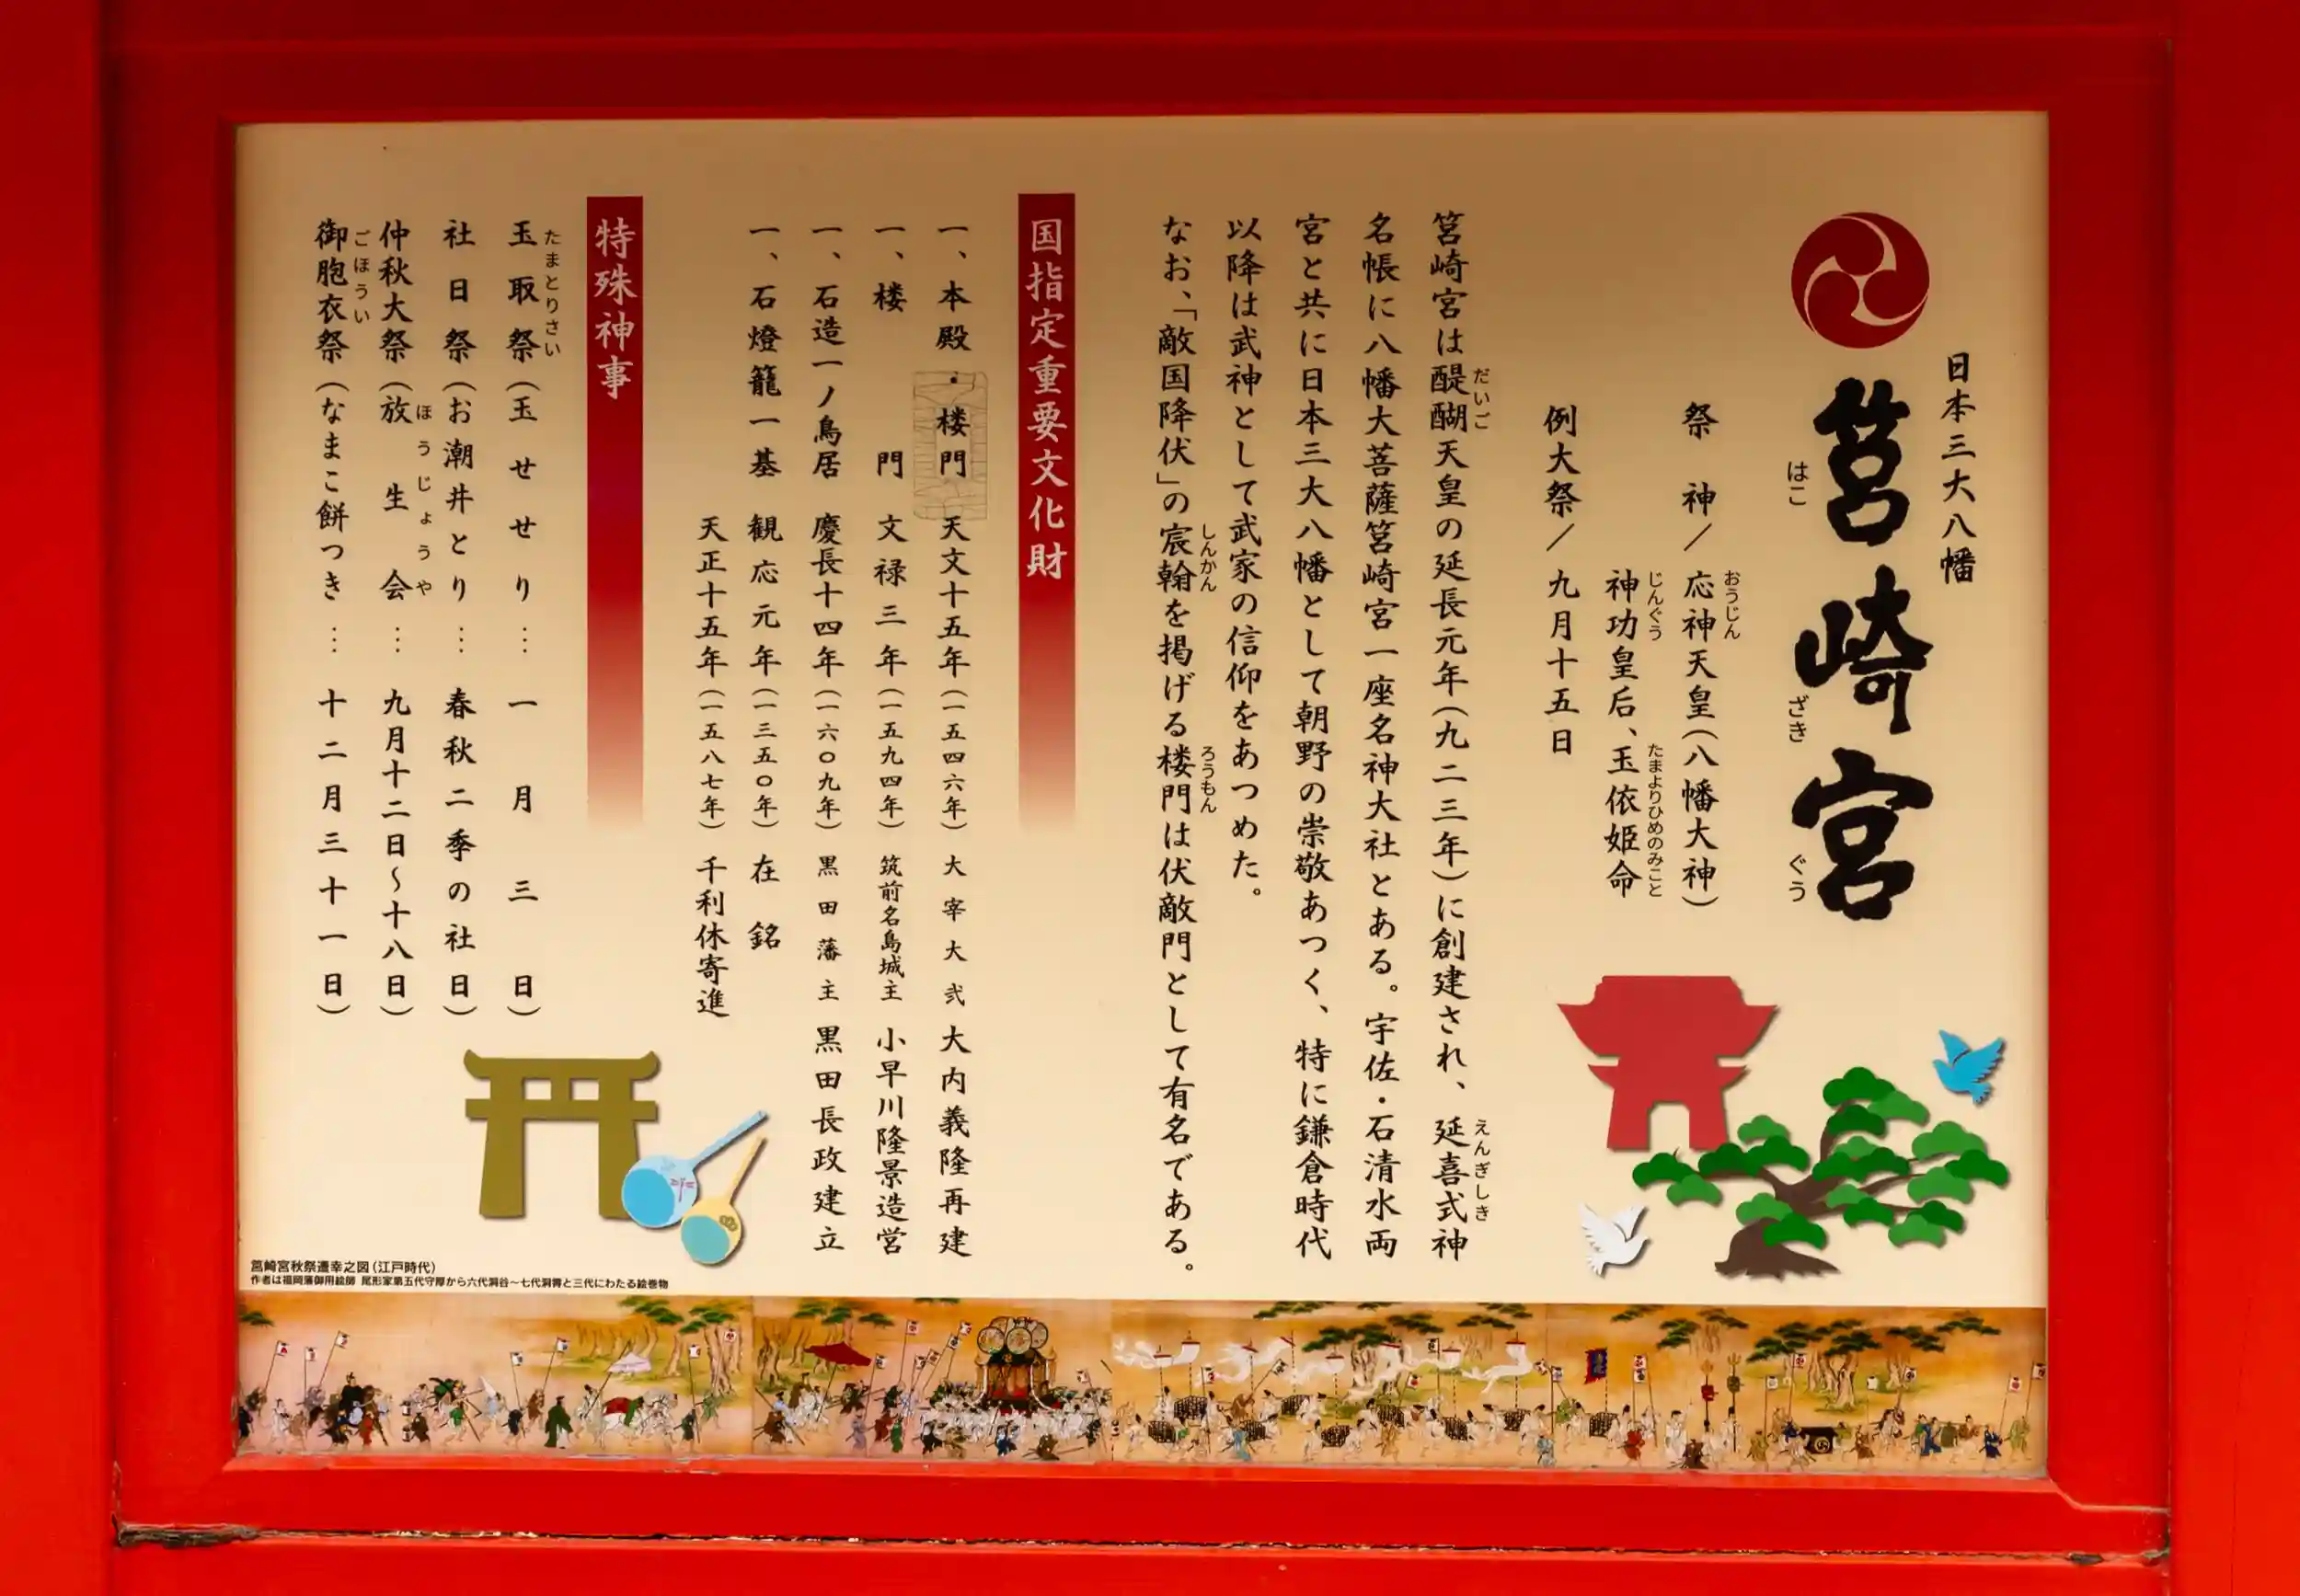 日本三大八幡
筥崎宮
はこざきぐう
祭神／応神天皇(八幡大神)
おうじん
神功皇后、玉依姫命
じんぐう たまよりひめのみこと
例大祭／九月十五日
筥崎宮は醍醐天皇の延長元年(九二三年)に創建され、延喜式神
だいご えんぎしき
名帳に八幡大菩薩筥崎宮一座名神大社とある。宇佐・石清水両
宮と共に日本三大八幡として朝野の崇敬あつく、特に鎌倉時代
以降は武神として武家の信仰をあつめた。
なお、「敵国降伏」の宸翰を掲げる楼門は伏敵門として有名である。
しんかん ろうもん
国指定重要文化財
一、本殿・楼門 天文十五年(一五四六年) 大宰大弐 大内義隆再建
一、楼門 文禄三年(一五九四年) 筑前名島城主 小早川隆景造営
一、石造一ノ鳥居 慶長十四年(一六〇九年) 黒田藩主 黒田長政建立
一、石燈籠一基 観応元年(一三五〇年) 在銘
天正十五年(一五八七年) 千利休寄進
特殊神事
玉取祭(玉せせり…一月三日)
たまとりさい
社日祭(お潮井とり…春秋二季の社日)
仲秋大祭(放生会…九月十二日～十八日)
ほうじょうや
御胞衣祭(なまこ餅つき…十二月三十一日)
ごほうい
筥崎宮秋祭遷幸之図(江戸時代)
作者は福岡藩御用絵師 尾形家第五代守厚から六代洞谷～七代洞霄と三代にわたる絵巻物